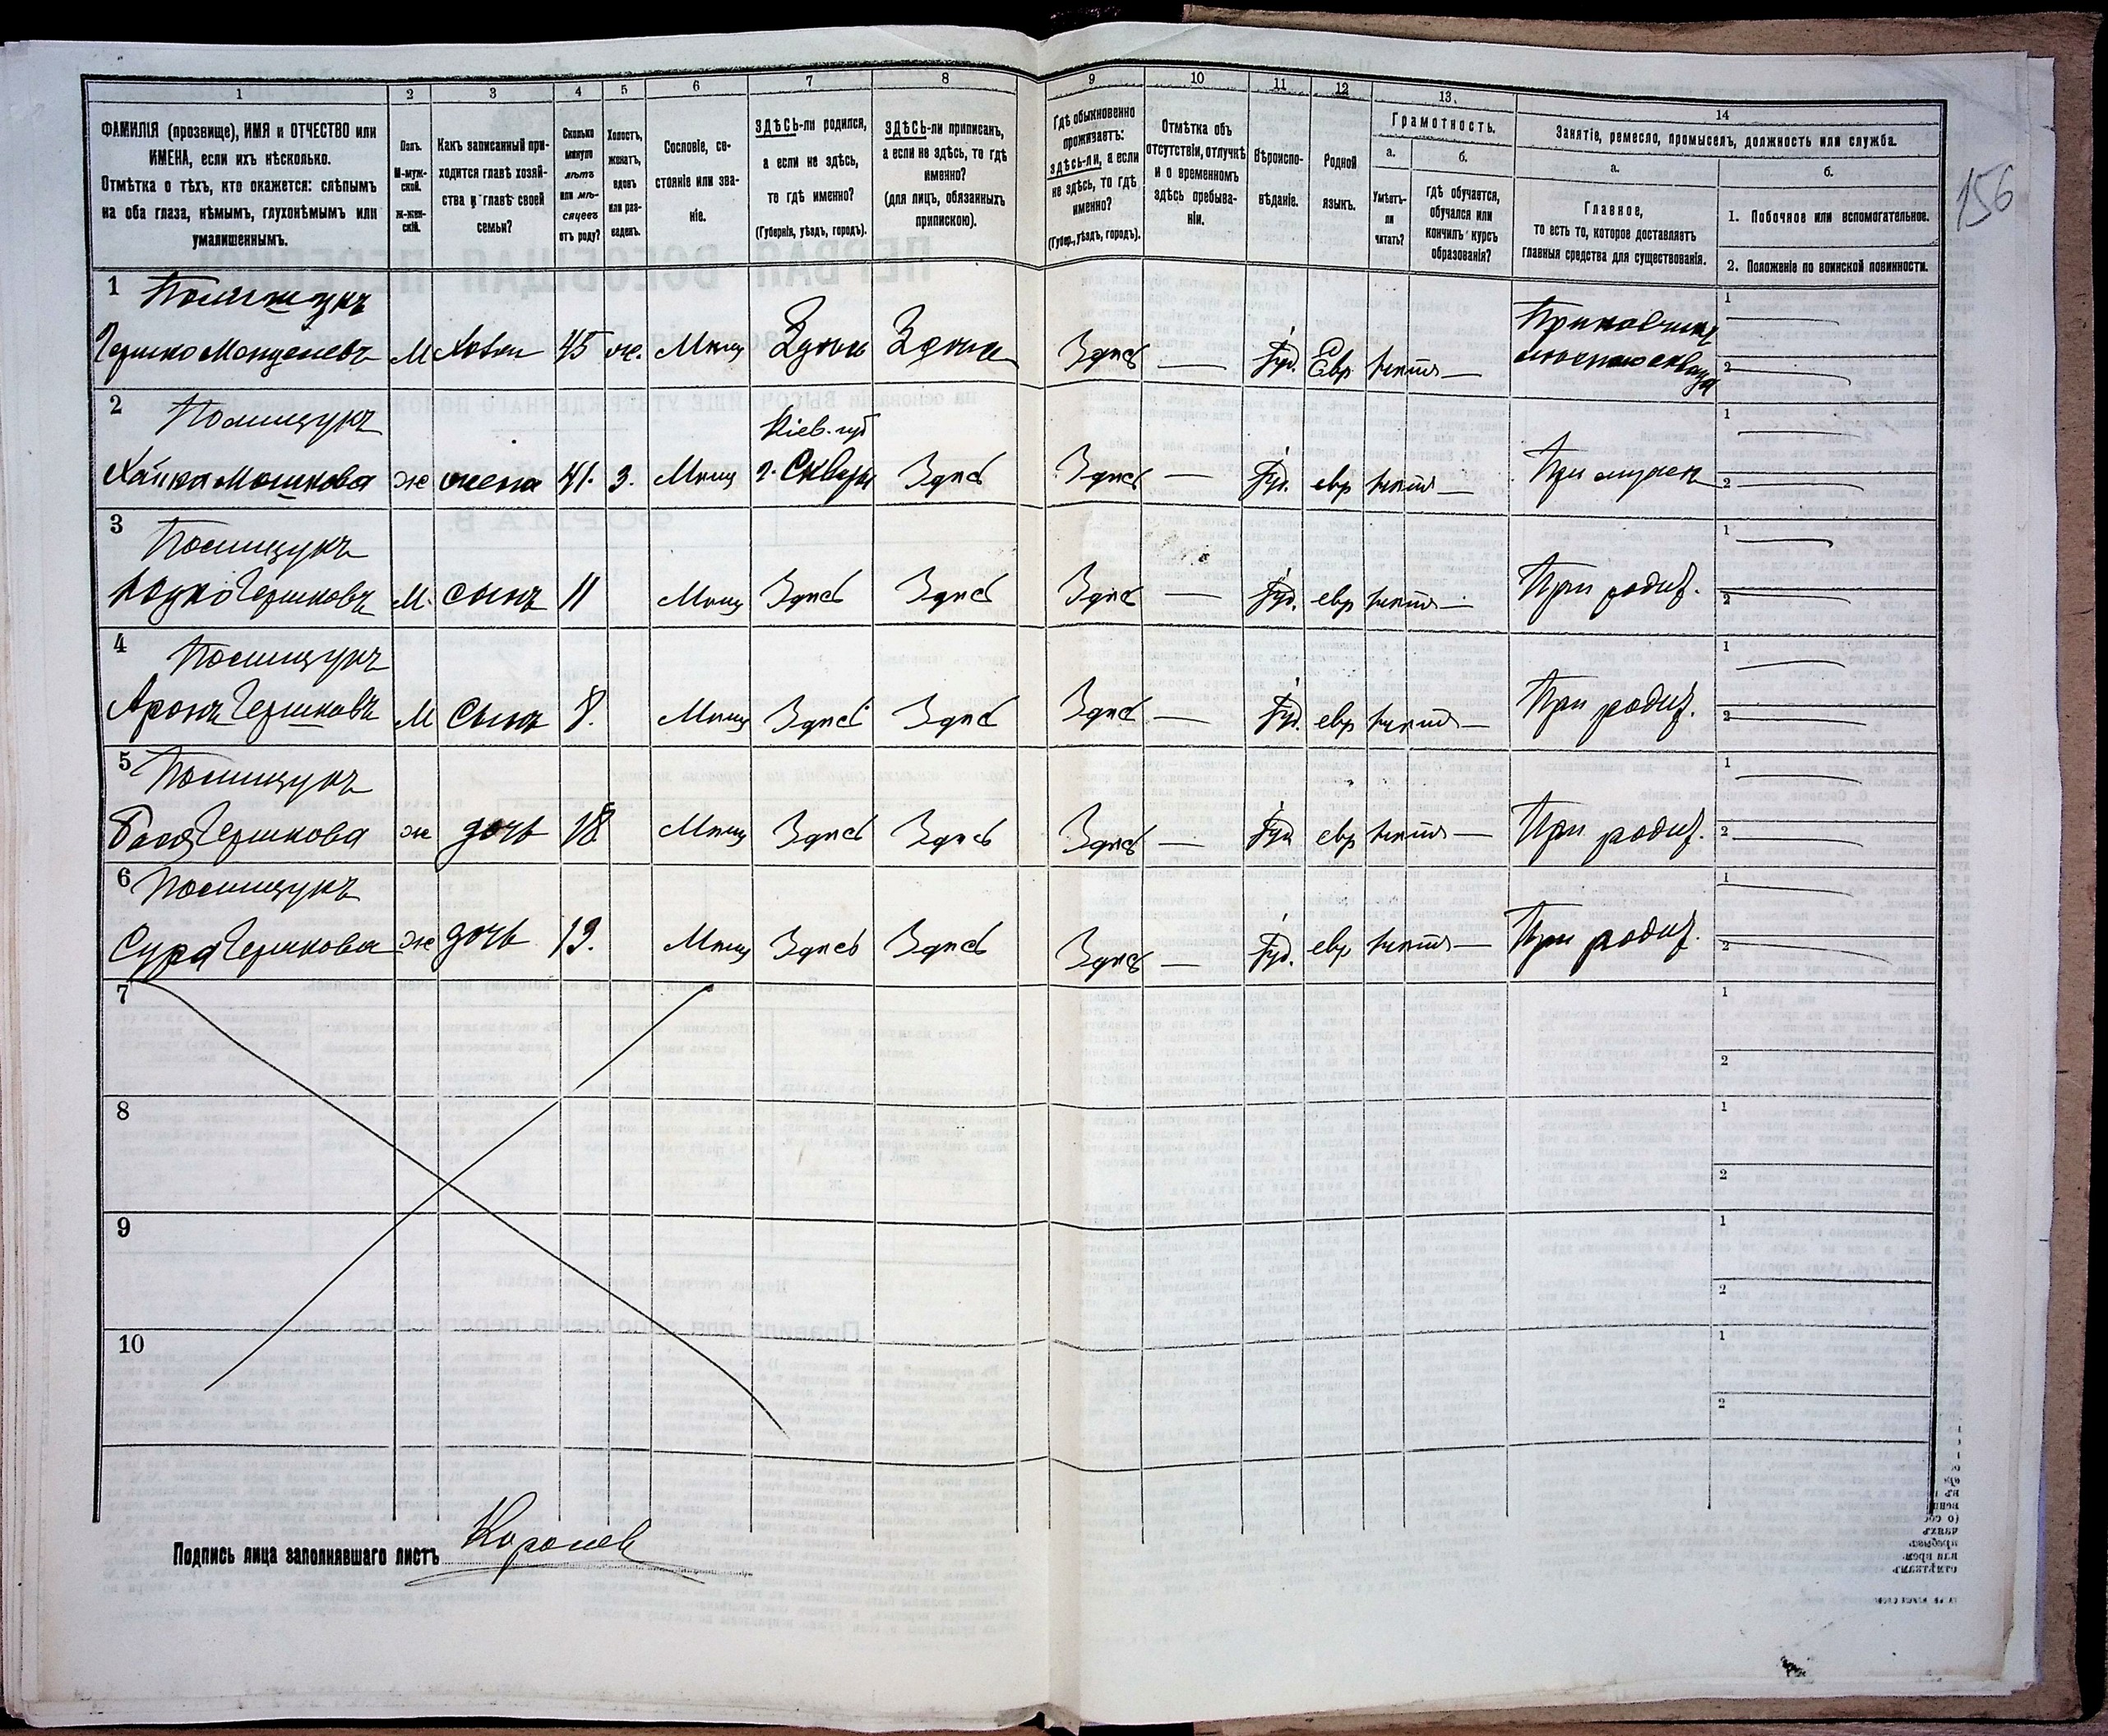 1 2 3 4 5 6 7 8 9 10 11 12 13. 14
ФАМИЛІЯ (прозвище), ИМЯ и ОТЧЕСТВО или
ИМЕНА, если ихъ нѣсколько.
Отмѣтка о тѣхъ, кто окажется: слѣпымъ
на оба глаза, нѣмымъ, глухонѣмымъ или
умалишеннымъ.
Полъ.
М-муж-
ской.
ж-жен-
скій.
Какъ записанный при-
ходится главѣ хозяй-
ства и главѣ своей
семьи?
Сколько
минуло
лѣтъ
или мѣ-
сяцевъ
отъ роду?
Холостъ,
женатъ,
вдовъ
или раз-
веденъ.
Сословіе, со-
стояніе или зва-
ніе.
ЗДѢСЬ-ли родился,
а если не здѣсь,
то гдѣ именно?
(Губернія, уѣздъ, городъ).
ЗДѢСЬ-ли приписанъ,
а если не здѣсь, то гдѣ
именно?
(для лицъ, обязанныхъ
припискою).
Гдѣ обыкновенно
проживаетъ:
ЗДѢСЬ-ли, а если
не здѣсь, то гдѣ
именно?
(Губер., уѣздъ, городъ).
Отмѣтка объ
отсутствіи, отлучкѣ
и о временномъ
здѣсь пребыва-
ніи.
Вѣроиспо-
вѣданіе.
Родной
языкъ.
Грамотность.
а.
Умѣетъ-
ли
читать?
б.
Гдѣ обучается,
обучался или
кончилъ курсъ
образованія?
Занятіе, ремесло, промыселъ, должность или служба.
а.
Главное,
то есть то, которое доставляетъ
главныя средства для существованія.
б.
1. Побочное или вспомогательное.
2. Положеніе по воинской повинности.
156
1 Полищукъ
М 45 же. Мѣщ Здѣсь Здѣсь Здѣсь — Іуд. Евр — 1 — 2 —
2 Полищукъ
Кіев. губ
Хайка Мошкова ж жена 41. З. Мѣщ г. Сквиры Здѣсь Здѣсь — Іуд. евр — При мужѣ 1 — 2 —
3 Полищукъ
Гершковъ М. сынъ 11 Мѣщ Здѣсь Здѣсь Здѣсь — Іуд. евр — При родит. 1 — 2 —
4 Полищукъ
Аронъ Гершковъ М Сынъ 8. Мѣщ Здѣсь Здѣсь Здѣсь — Іуд. евр — При родит. 1 — 2 —
5 Полищукъ
Гершкова ж дочь 18 Мѣщ Здѣсь Здѣсь Здѣсь — Іуд евр — При родит. 1 — 2 —
6 Полищукъ
Сура Гершкова ж дочь 13. Мѣщ Здѣсь Здѣсь Здѣсь — Іуд. евр — При родит. 1 — 2 —
7 1 2
8 1 2
9 1 2
10 1 2
Подпись лица заполнявшаго листъ